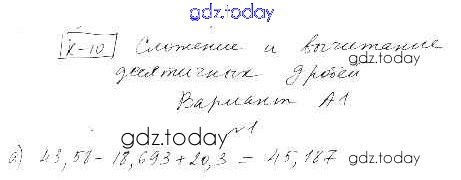 gdz.today
К-10 Сложение и вычитание
десятичных дробей
Вариант А1
gdz.today №1
а) 43,58 - 18,693 + 20,3 = 45,187
gdz.today